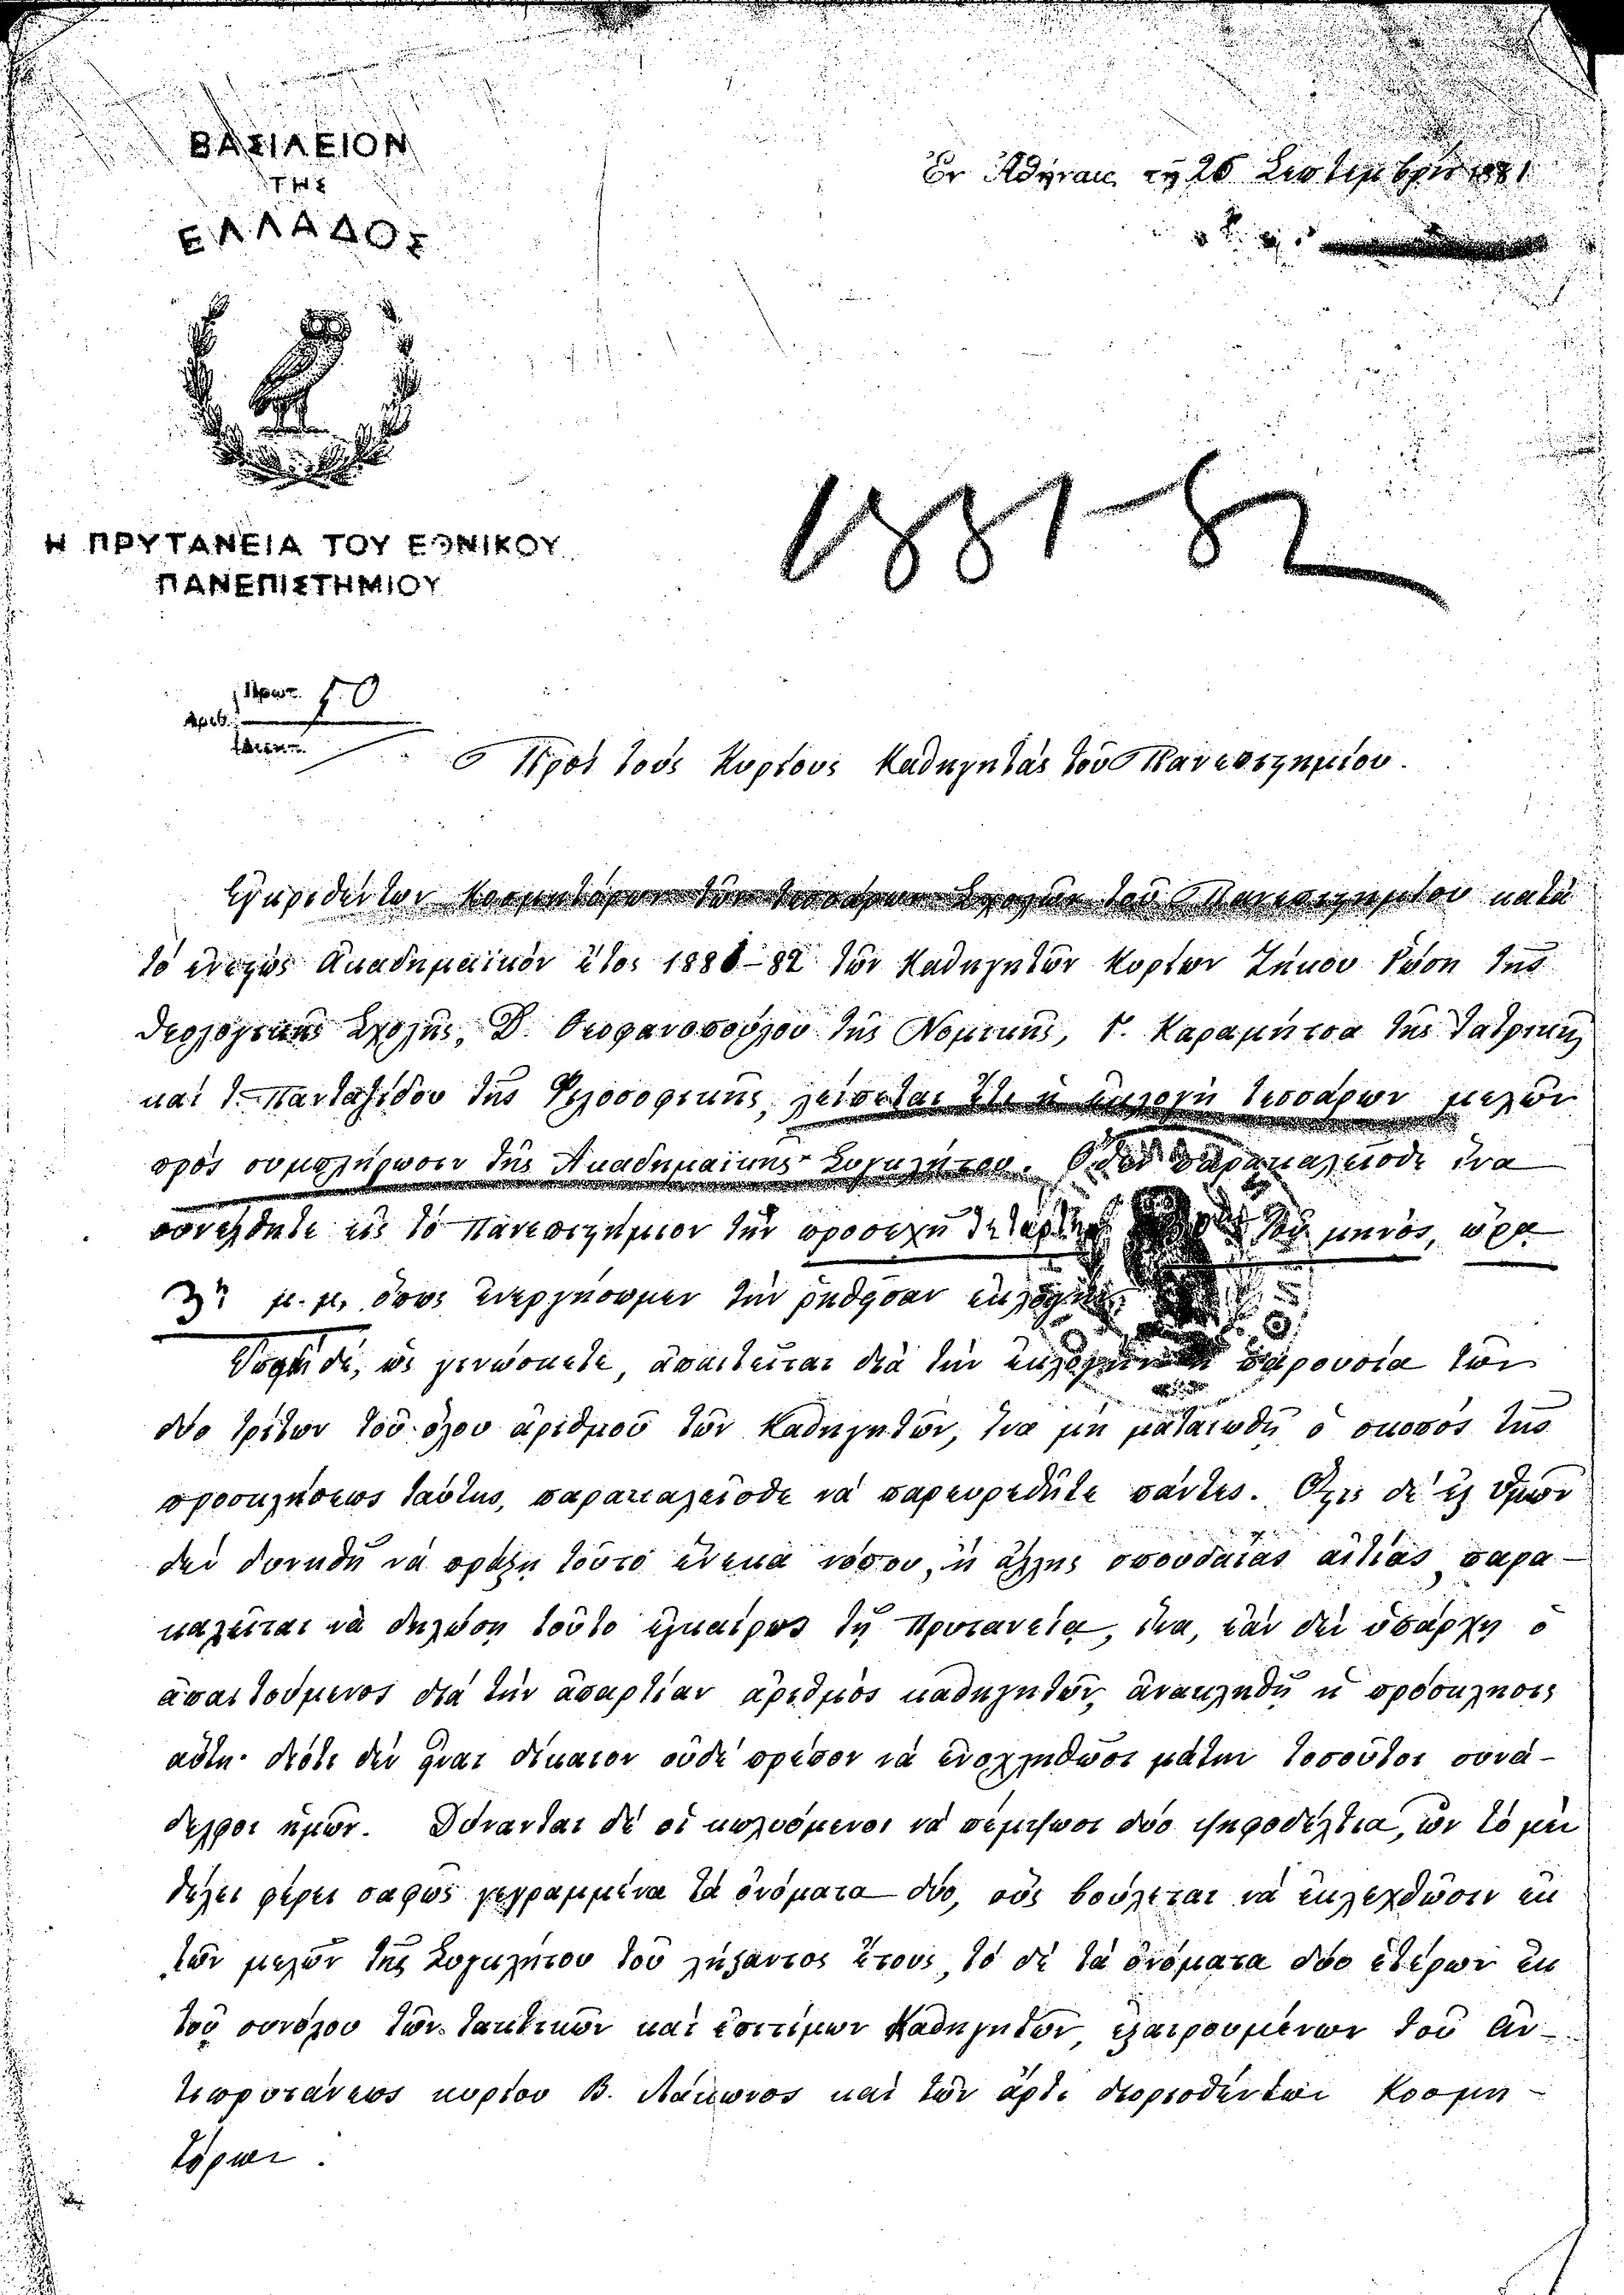 ΒΑΣΙΛΕΙΟΝ
ΤΗΣ
ΕΛΛΑΔΟΣ
Ἐν Ἀθήναις τῇ 26 Σεπτεμβρίου 1881
Η ΠΡΥΤΑΝΕΙΑ ΤΟΥ ΕΘΝΙΚΟΥ
ΠΑΝΕΠΙΣΤΗΜΙΟΥ
1881-82
Πρωτ. 50
Αριθ.
Διεκπ.
Πρὸς τοὺς Κυρίους Καθηγητὰς τοῦ Πανεπιστημίου.
Ἐγκριθέντων Κοσμητόρων τῶν τεσσάρων Σχολῶν τοῦ Πανεπιστημίου κατὰ
τὸ ἐνεστὼς Ἀκαδημαϊκὸν ἔτος 1881-82 τῶν Καθηγητῶν Κυρίων Ζήκου Ῥώση τῆς
Θεολογικῆς Σχολῆς, Β. Οἰκονομοπούλου τῆς Νομικῆς, Γ. Καραμήτσα τῆς Ἰατρικῆς
καὶ Ι. Πανταζίδου τῆς Φιλοσοφικῆς, λείπεται ἔτι ἡ ἐκλογὴ τεσσάρων μελῶν
πρὸς συμπλήρωσιν τῆς Ἀκαδημαϊκῆς Συγκλήτου. Ὅθεν παρακαλεῖσθε ἵνα
συνέλθητε εἰς τὸ Πανεπιστήμιον τὴν προσεχῆ Τετάρτην τοῦ μηνὸς, ὥρᾳ
3ῃ μ.μ. ὅπως ἐνεργήσωμεν τὴν ῥηθεῖσαν ἐκλογήν.
Ἐπειδὴ δὲ, ὡς γινώσκετε, ἀπαιτεῖται διὰ τὴν ἐκλογὴν ἡ παρουσία τῶν
δύο τρίτων τοῦ ὅλου ἀριθμοῦ τῶν Καθηγητῶν, ἵνα μὴ ματαιωθῇ ὁ σκοπὸς τῆς
προσκλήσεως ταύτης, παρακαλεῖσθε νὰ παρευρεθῆτε πάντες. Ὅστις δὲ ἐξ Ὑμῶν
δὲν δυνηθῇ νὰ πράξῃ τοῦτο ἕνεκα νόσου, ἢ ἄλλης σπουδαίας αἰτίας, παρα-
καλεῖται νὰ δηλώσῃ τοῦτο ἐγκαίρως τῇ Πρυτανείᾳ, ἵνα, ἐὰν δὲν ὑπάρχῃ ὁ
ἀπαιτούμενος διὰ τὴν ἀπαρτίαν ἀριθμὸς καθηγητῶν, ἀνακληθῇ ἡ πρόσκλησις
αὕτη· διότι δὲν εἶναι δίκαιον οὐδὲ πρέπον νὰ ἐνοχληθῶσι μάτην τοσοῦτοι συνά-
δελφοι ἡμῶν. Δύνανται δὲ οἱ κωλυόμενοι νὰ πέμψωσι δύο ψηφοδέλτια, ὧν τὸ μὲν
θέλει φέρει σαφῶς γεγραμμένα τὰ ὀνόματα δύο, οὓς βούλεται νὰ ἐκλεχθῶσιν ἐκ
τῶν μελῶν τῆς Συγκλήτου τοῦ λήξαντος ἔτους, τὸ δὲ τὰ ὀνόματα δύο ἑτέρων ἐκ
τοῦ συνόλου τῶν τακτικῶν καὶ ἐπιτίμων Καθηγητῶν, ἐξαιρουμένων τοῦ Ἀν-
τιπρυτάνεως κυρίου Β. Λάκωνος καὶ τῶν ἄρτι διορισθέντων Κοσμη-
τόρων.